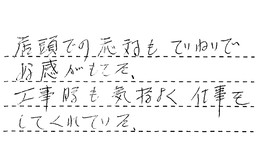 店頭での応対もていねいで
好感がもてる。
工事時も気持よく仕事を
してくれている。